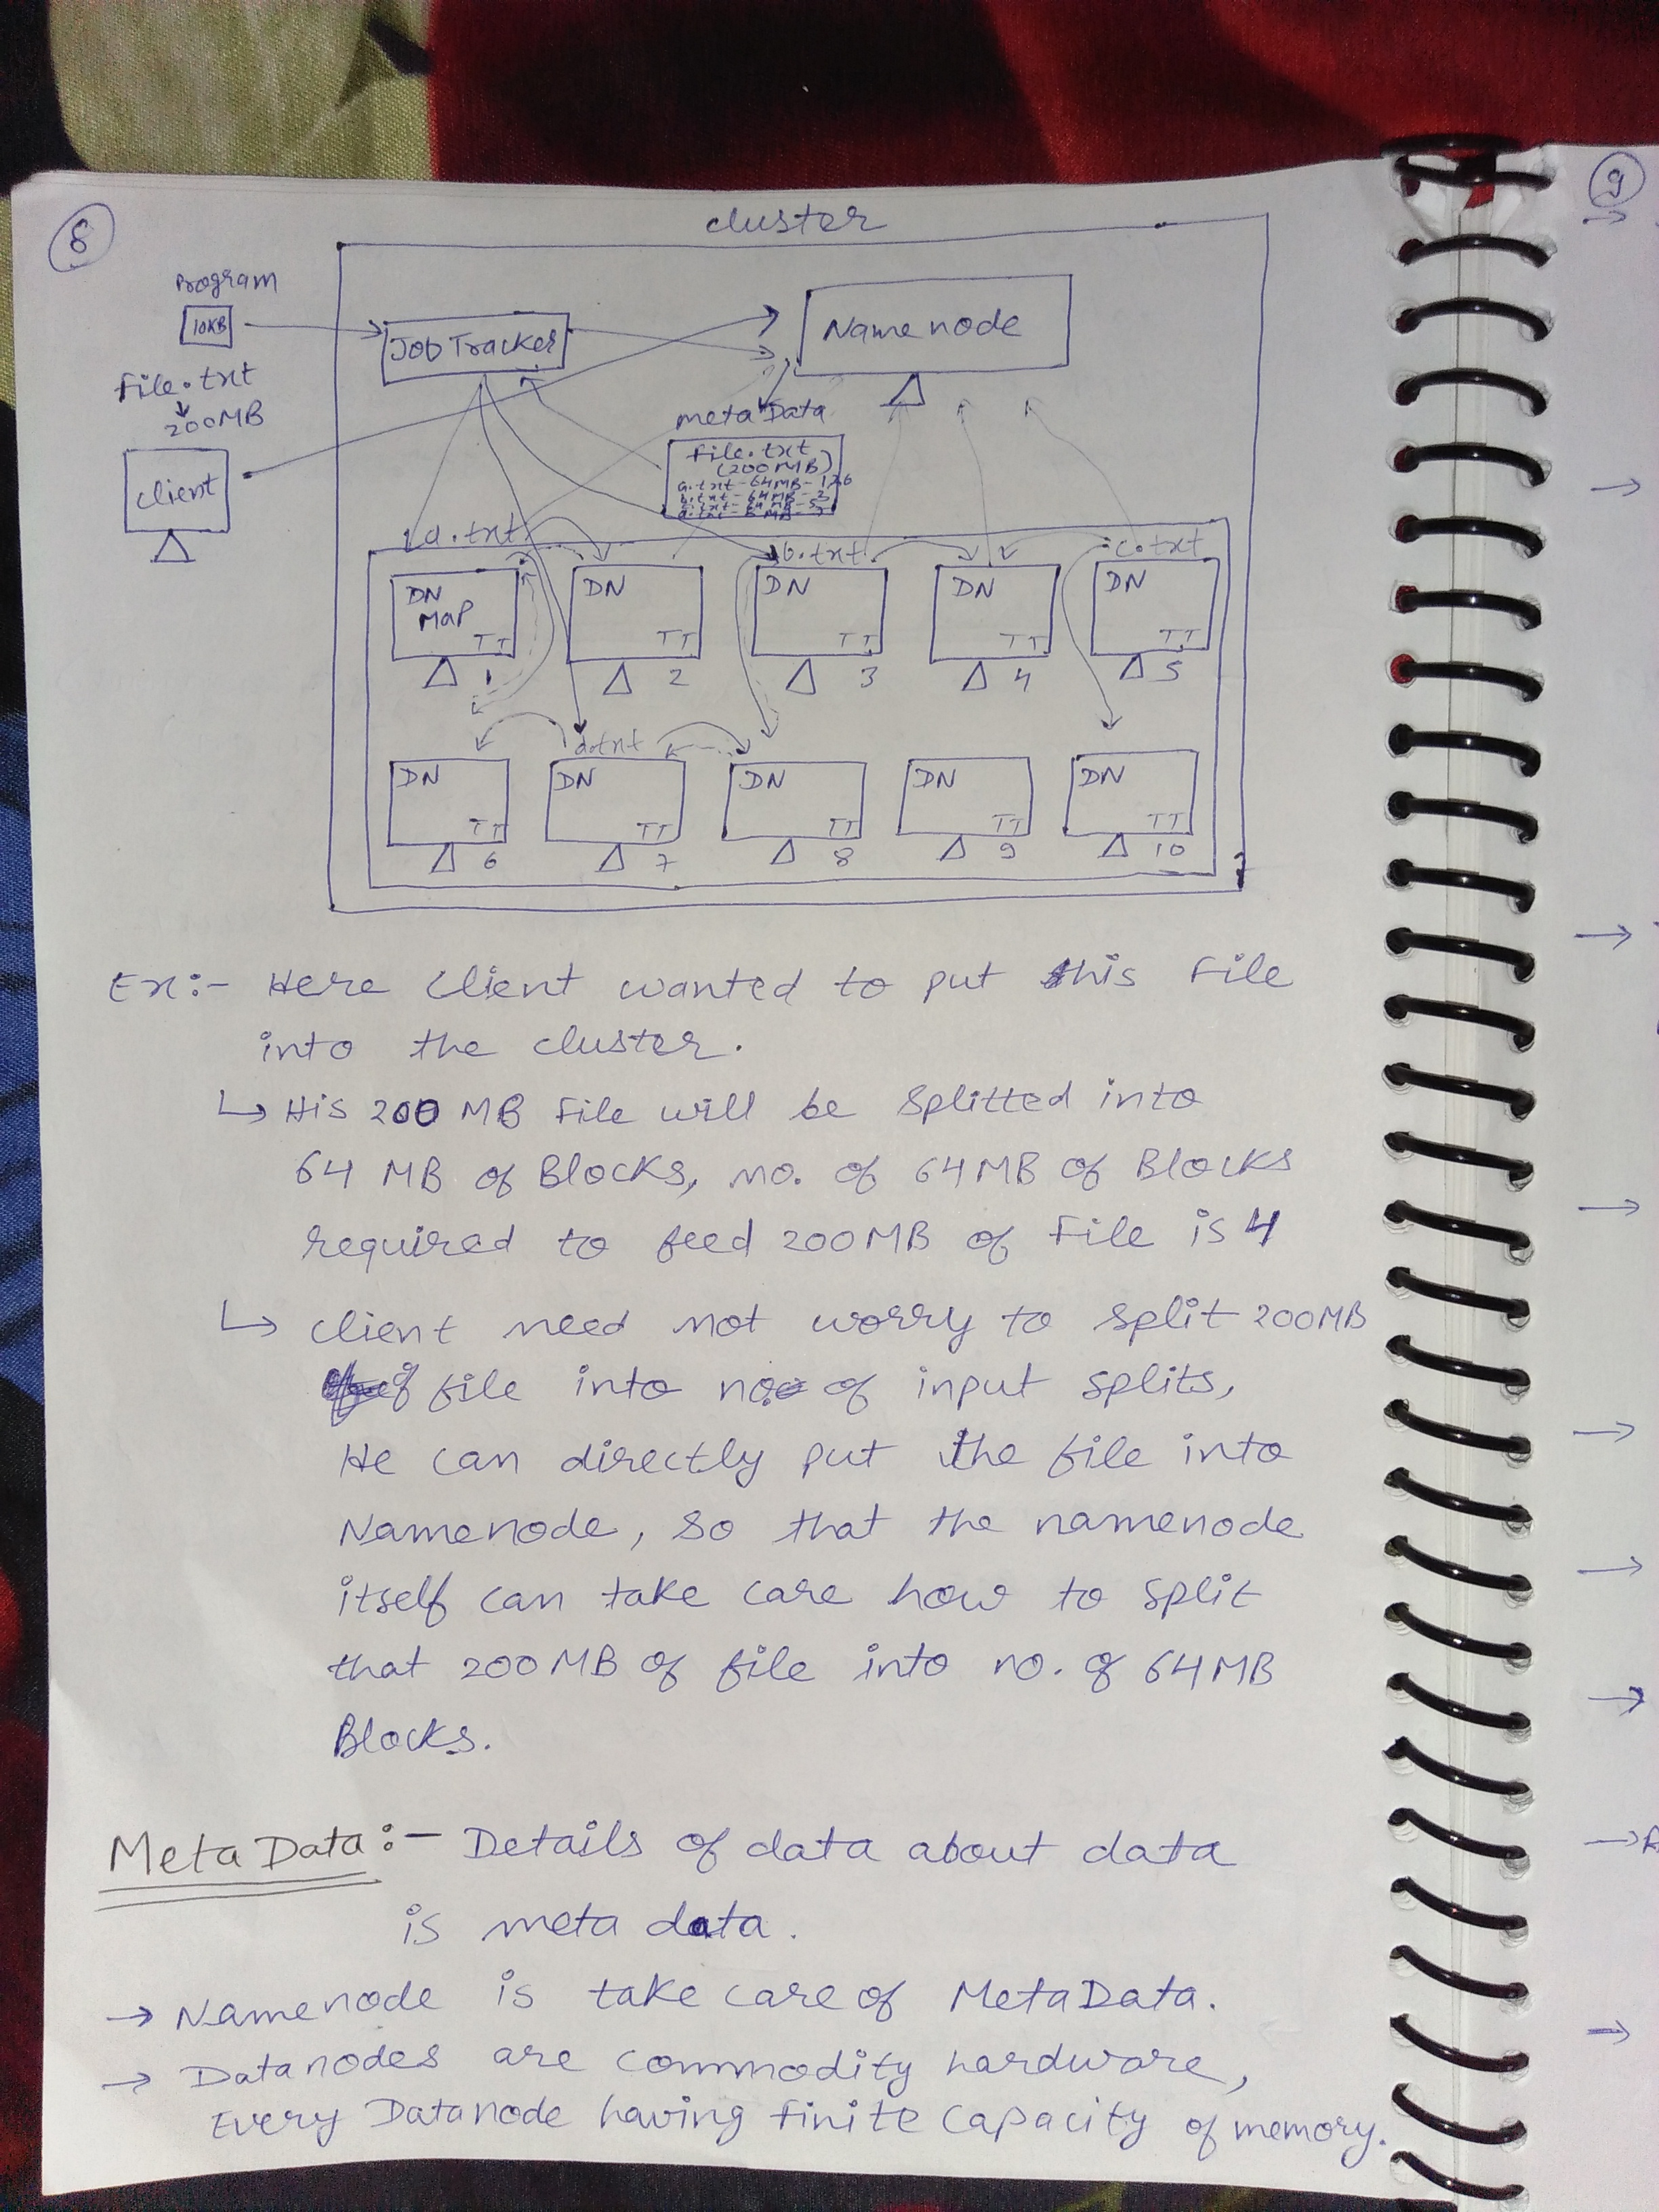 8
9
cluster
Program
10KB
Job Tracker
Name node
file.txt
200MB
client
meta Data
file.txt
(200 MB)
a.txt-64MB-1,2,6
b.txt-64MB-3
a.txt
b.txt
c.txt
DN
MaP
TT
DN
TT
DN
TT
DN
TT
DN
TT
1
2
3
4
5
d.txt
DN
TT
DN
TT
DN
TT
DN
TT
DN
TT
6
7
8
9
10
Ex:- Here Client wanted to put this File
into the cluster.
↳ His 200 MB File will be splitted into
64 MB of Blocks, no. of 64MB of Blocks
required to feed 200MB of File is 4
↳ client need not worry to split 200MB
file into no. of input splits,
He can directly put the file into
Namenode, so that the namenode
itself can take care how to split
that 200MB of file into no. of 64MB
Blocks.
Meta Data:- Details of data about data
is meta data.
→ Namenode is take care of MetaData.
→ Datanodes are commodity hardware,
Every Datanode having finite capacity of memory.